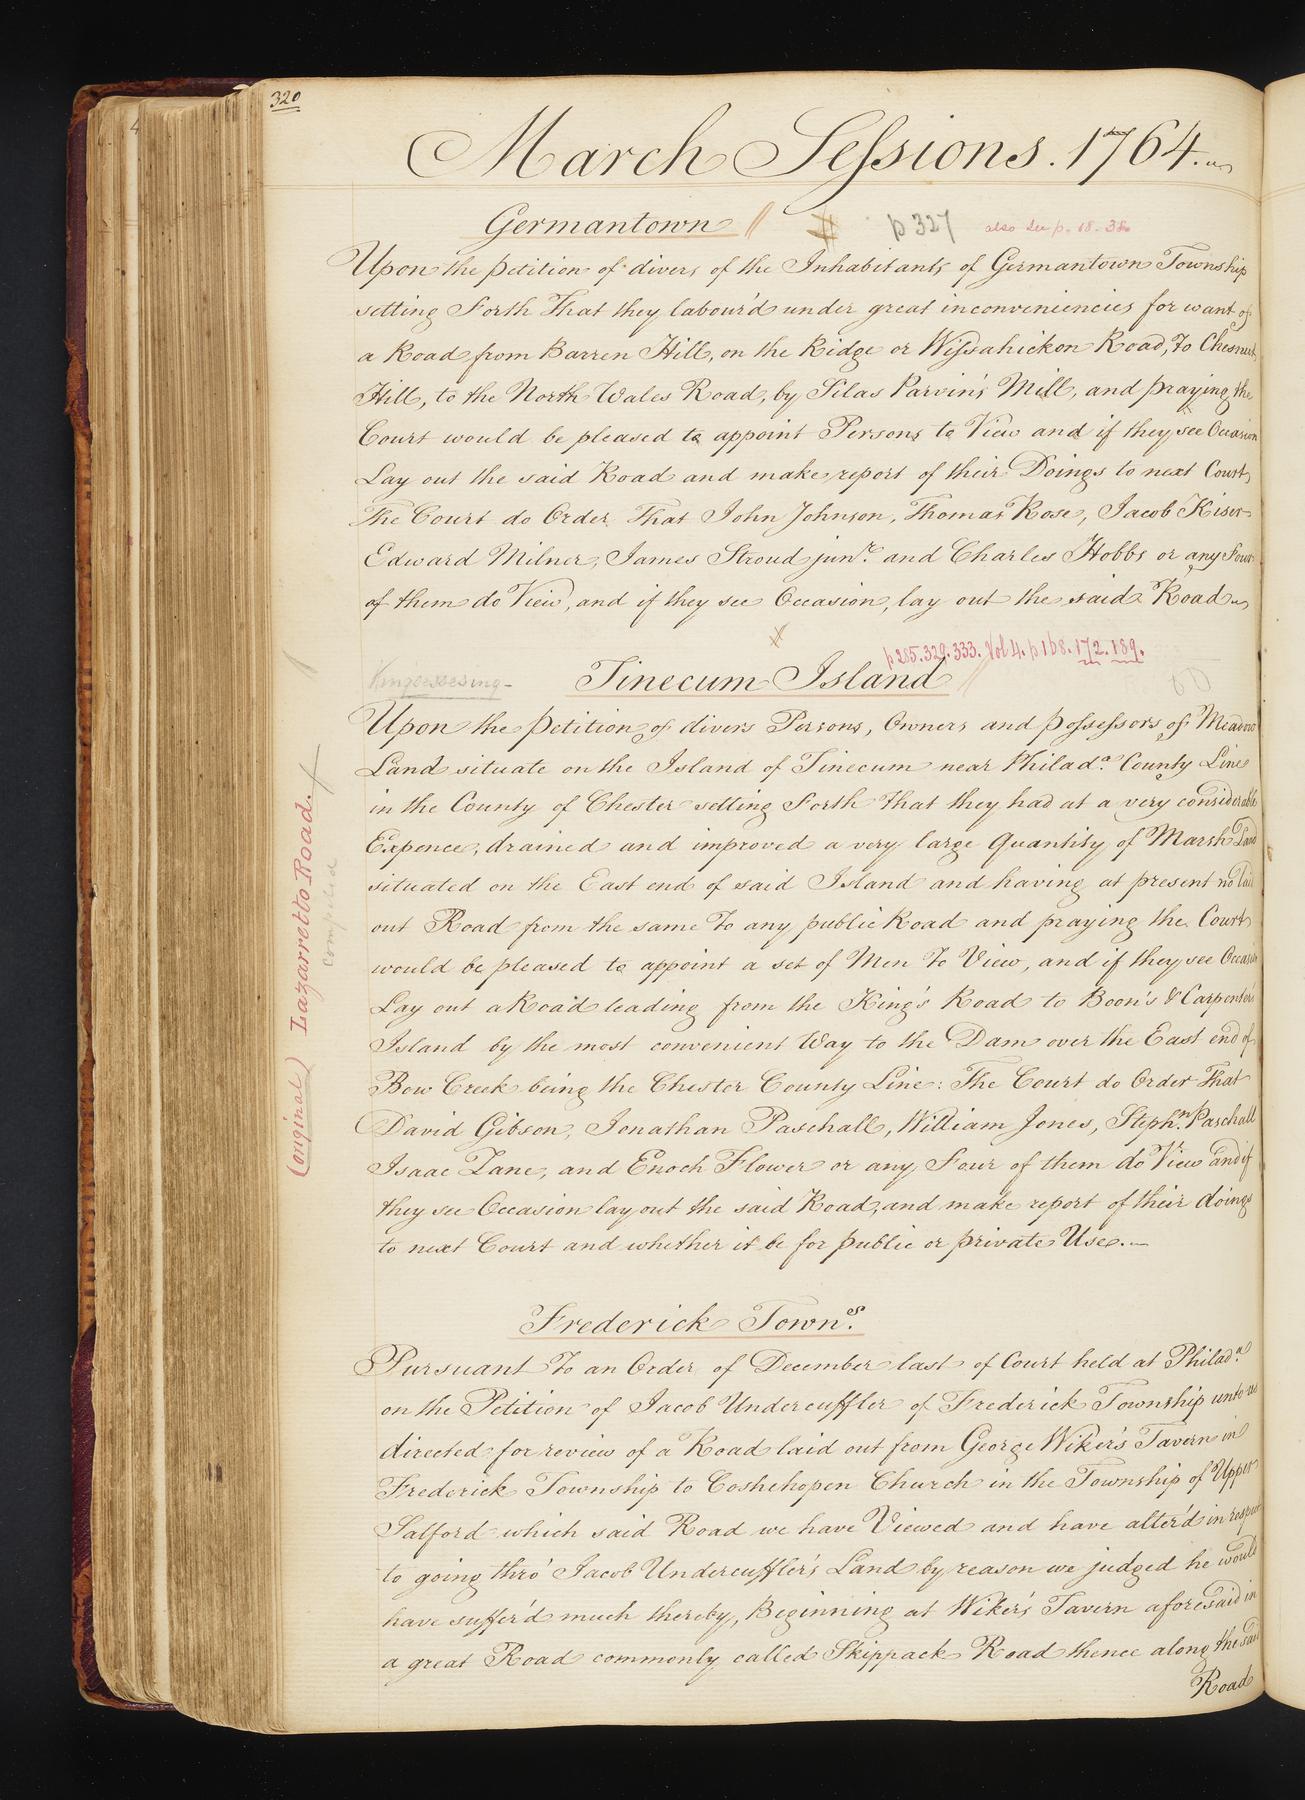 320
March Sessions. 1764.
Germantown // p 327 also See p. 18. 38
Upon the petition of divers of the Inhabitants of Germantown Township
setting Forth That they labour'd under great inconveniencies for want of
a Road from Barren Hill, on the Ridge or Wissahickon Road, To Chesnut
Hill, to the North Wales Road, by Silas Parvin's Mill, and praying the
Court would be pleased to appoint Persons to View and if they see Occasion
Lay out the said Road and make report of their Doings to next Court,
The Court do Order That John Johnson, Thomas Rose, Jacob Kiser
Edward Milner, James Stroud junr. and Charles Hobbs or any Four
of them do View, and if they see Occasion, lay out the said Road
p 285. 329. 333. Vol 4. p 168. 172. 189.
Kingsessing- Tinecum Island
Upon the petition of divers Persons, Owners and possessors of Meadow
Land situate on the Island of Tinecum near Philada. County Line
in the County of Chester setting Forth That they had at a very considerable
Expence, drained and improved a very large Quantity of Marsh Land
situated on the East end of said Island and having at present no laid
out Road from the same To any public Road and praying the Court
would be pleased to appoint a set of Men To View, and if they see Occasion
Lay out a Road leading from the King's Road to Boon's & Carpenter's
Island by the most convenient Way to the Dam over the East end of
Bow Creek being the Chester County Line: The Court do Order That
David Gibson, Jonathan Paschall, William Jones, Stephn. Paschall
Isaac Lane, and Enoch Flower or any Four of them do View and if
they see Occasion lay out the said Road, and make report of their doings
to next Court and whether it be for public or private Use.
(original) Lazarretto Road.
compiled
Frederick Towns.
Pursuant To an Order of December last of Court held at Philada.
on the Petition of Jacob Undercuffler of Frederick Township unto us
directed for review of a Road laid out from George Wiker's Tavern in
Frederick Township to Coshehopen Church in the Township of Upper
Salford which said Road we have Viewed and have alter'd in respect
to going thro' Jacob Undercuffler's Land by reason we judged he would
have suffer'd much thereby, Beginning at Wiker's Tavern aforesaid in
a great Road commonly called Skippack Road thence along the said
Road